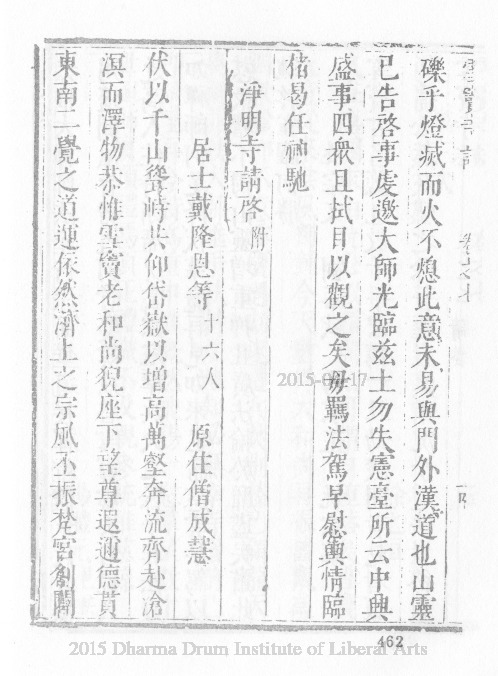 礫乎燈滅而火不熄此意未易與門外漢道也山靈
已告啓事虔邀大師光臨茲土勿失憲臺所云中興
盛事四衆且拭目以觀之矣毋羈法駕早慰輿情臨
楮曷任神馳
淨明寺請啓附
居士戴隆恩等十六人 原住僧成慧
伏以千山聳峙共仰岱嶽以增高萬壑奔流齊赴滄
溟而澤物恭惟雪竇老和尚猊座下望尊遐邇德貫
東南二覺之道運依然濟上之宗風丕振梵宮創闢
2015-09-17
462
2015 Dharma Drum Institute of Liberal Arts